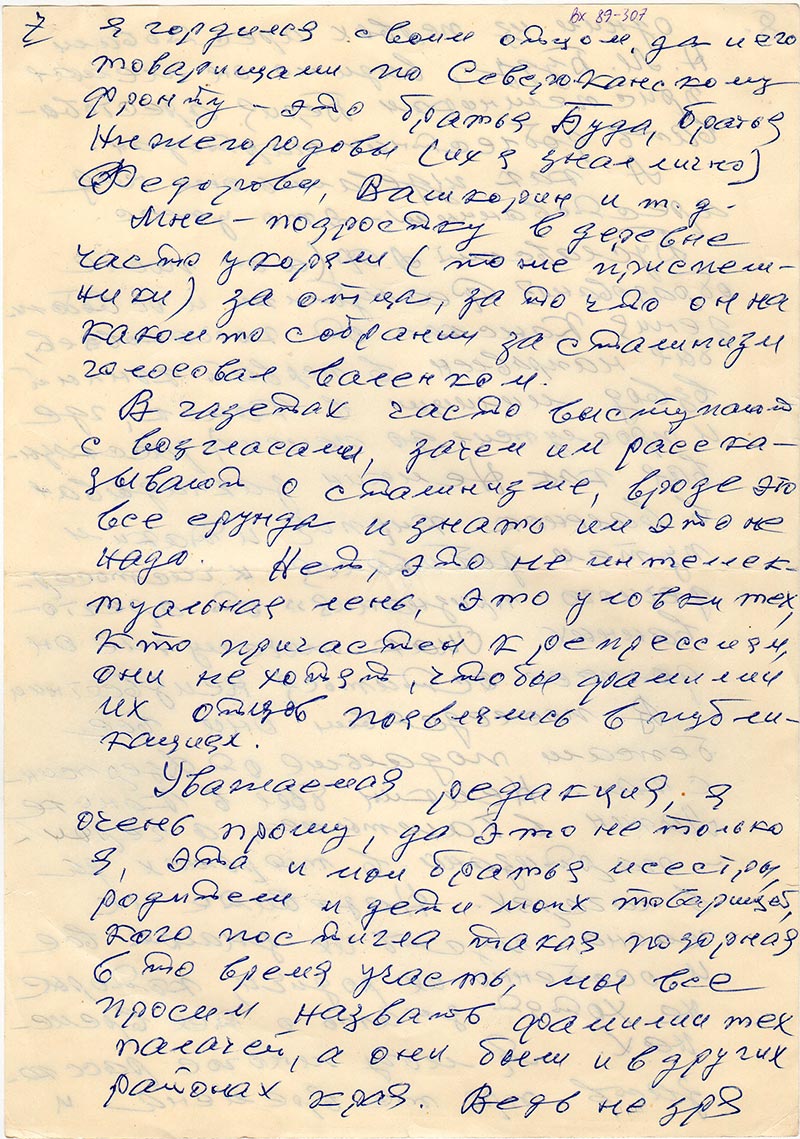 Вх 89-307
7 я гордился своим отцом, да и его
товарищами по Северо-Канскому
фронту - это братья Буда, братья
Нижегородовы (их я знал лично)
Федотова, Вашкорин и т.д.
Мне - подростку в деревне
часто укоряли (те же приспеш-
ники) за отца, за то что он на
каком то собрании за сталинизм
голосовал валенком.
В газетах часто выступают
с возгласами, зачем им расска-
зывают о сталинизме, вроде это
все ерунда и знать им это не
надо. Нет, это не интеллек-
туальная лень, это уловки тех,
кто причастен к репрессиям,
они не хотят, чтобы фамилии
их отцов появлялись в публи-
кациях.
Уважаемая редакция, я
очень прошу, да это не только
я, эта и мои братья и сестры,
родители и дети моих товарищей,
кого постигла такая позорная
в то время участь, мы все
просим назвать фамилии тех
палачей, а они были и в других
районах края. Ведь не зря